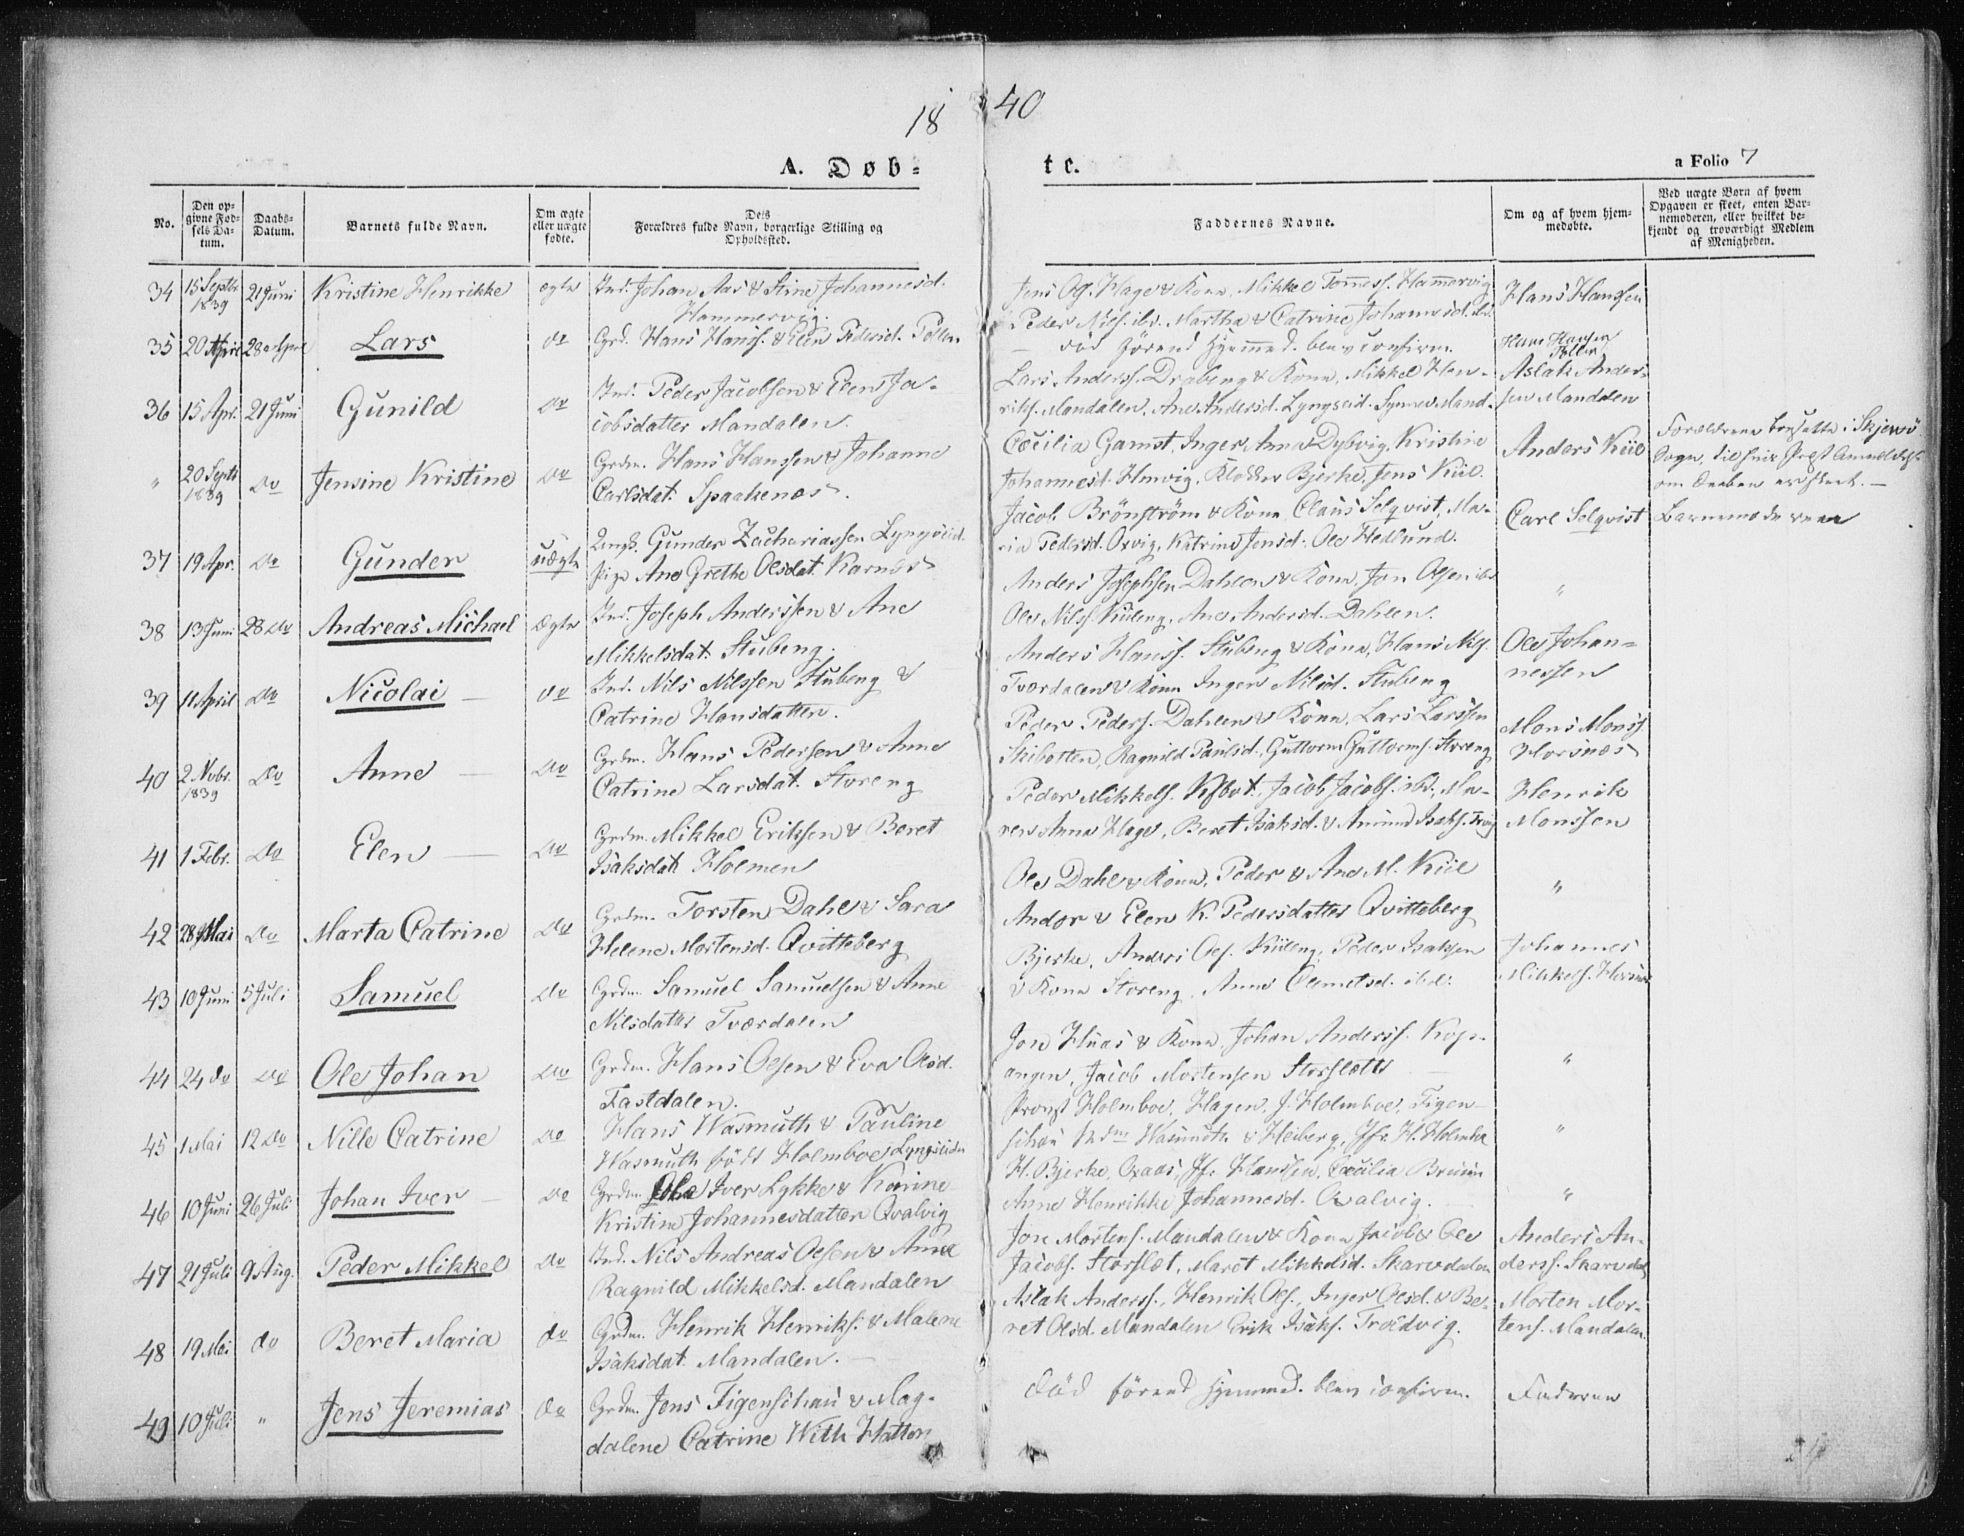 18 40
A. Døb-
te.
a Folio 7
No.
Den op-
givne Fød-
sels Da-
tum.
Daabs-
Datum.
Barnets fulde Navn.
Om ægte
eller uægte
fødte.
Dets
Forældres fulde Navn, borgerlige Stilling og
Opholdssted.
Faddernes Navne.
Om og af hvem hjem-
medøbte.
Ved uægte Børn af hvem
Opgaven er skeet, enten Bar-
nemoderen, eller hvilket be-
kjendt og troværdigt Medlem
af Menigheden.
34 15 Septbr 1839 21 Juni Kristine Henrikke ægte Ind. Johan Aas & Stine Johannesd.
Hammervig.
Jens Ols. Hage & Kone, Mikkel Tomess. Hammervig
Peder Nils. ibd. Martha & Catrine Johannesd. ibd.
Hans Hanssen
35 20 April 28 April Lars do Grd. Hans Hanss. & Elen Pedersd. Pollen
død förend Hjemmed. blev confirm.
Hans Hansen
Pollen
36 15 Apr. 21 Juni Gunild do Ind. Peder Jacobsen & Elen Ja-
cobsdatter Mandalen.
Lars Anderss. Drabeng & Kone, Mikkel Hen-
riks. Mandalen, Ane Andersd. Lyngseid. Mand.
Aslak Ander-
sen Mandalen
" 20 Septb 1839 do Jensine Kristine do Grdm. Hans Hanssen & Johanne
Carlsdat. Spaakenæs.
Cæcilia Gamst, Inger Anna Dybvig, Kristine
Johannesd. Klokker Bjerke, Jens Kiil.
Anders Kiil
Forældrene bosatte i Skjervø
Sogn, til hvis Præst Anmeldelse
om Daaben er skeet.
37 19 Apr. do Gunder uægte Ungk. Gunder Zachariassen Lyngseid.
Pige Ane Grethe Olsdat. Karnæs
Jacob Brönström & Kone, Claus Selqvist, Ma-
ria Pedersd. Oxvig, Katrine Jensd. Ole Hedlund.
Carl Selqvist
Barnemoderen
38 13 Juni 28 do Andreas Michael ægte Ind. Joseph Anderssen & Ane
Mikkelsdat. Stubeng.
Anders Josephsen Dahlen & Kone, Jon Olsen ibd
Ole Nilss. Kileng, Ane Andersd. Dahlen.
"
39 11 April do Nicolai do Ind. Nils Nilssen Stubeng &
Catrine Hansdatter.
Anders Hanss. Stubeng & Kone, Hans Nils.
Tverdalen & Kone Inger Nilsd. Stubeng
Ole Johan-
nessen
40 2 Novbr. 1839 do Anne do Grdm. Hans Pedersen & Anne
Catrine Larsdat. Storeng
Peder Peders. Dahlen & Kone, Lars Larssen
Skibotten, Ragnild Paulsd., Guttorm Guttorms. Storeng
Mons Monss.
Horsnæs
41 1 Febr. do Elen do Grdm. Mikkel Erikssen & Beret
Isaksdat. Holmen
Peder Mikkels. Jacob Jacobs. ibd., Ma-
ren Anna Hage, Beret Isaksd. & Amund Isaks.
Henrik
Monssen
42 28 Mai do Marta Catrine do Grdm. Torsten Dahl & Sara
Helene Mortensd. Qvitteberg
Ole Dahl & Kone, Peder & Ane M. Kiil
Andor & Elen K. Pedersdatter Qvitteberg
"
43 10 Juni 5 Juli Samuel do Grdm. Samuel Samuelsen & Anne
Nilsdatter Tværdalen
Bjerke, Anders Ols. Kileng, Peder Isaksen
& Kone Storeng, Anne Clemetsd. ibd.
Johannes
Mikkels. Horsnæs
44 24 do do Ole Johan do Grdm. Hans Olsen & Eva Olsd.
Fastdalen.
Jon Huas & Kone, Johan Anderss. Kop-
angen, Jacob Mortensen Storslætt
"
45 1 Mai 12 do Nille Catrine do Hans Wasmuth & Pauline
Wasmuth født Holmboe Lyngseidet
Provst Holmboe, Hagen, J. Holmboe, Figen-
schau Mdm Wasmuth & Heiberg, Jfr. H. Holmboe
"
46 10 Juni 26 Juli Johan Iver do Grdm. Iver Lykke & Karine
Kristine Johannesdatter Qvalvig
H. Bjerke, Jfr. Hanssen, Cæcilia
Anne Henrikke Johannesd. Qvalvig.
"
47 21 Juli 9 Aug. Peder Mikkel do Ind. Nils Andreas Olsen & Anne
Ragnild Mikkelsd. Mandalen
Jon Mortens. Mandalen & Kone Jacob & Ole
Jacobs. Storslet, Maret Mikkelsd. Skarvdalen
Anders An-
derss. Skarvdal
48 19 Mai do Beret Maria do Grdm. Henrik Henriks. & Malene
Isaksdat. Mandalen.
Aslak Anderss., Henrik Ols., Inger Olsd. & Be-
ret Olsd. Mandalen Erik Isaks. Troldvig.
Morten Mor-
tens. Mandalen
49 10 Juli " Jens Jeremias do Grdm. Jens Figenschau & Mag-
dalene Catrine With Hatten
død förend Hjemmed. blev confirm.
Faderen